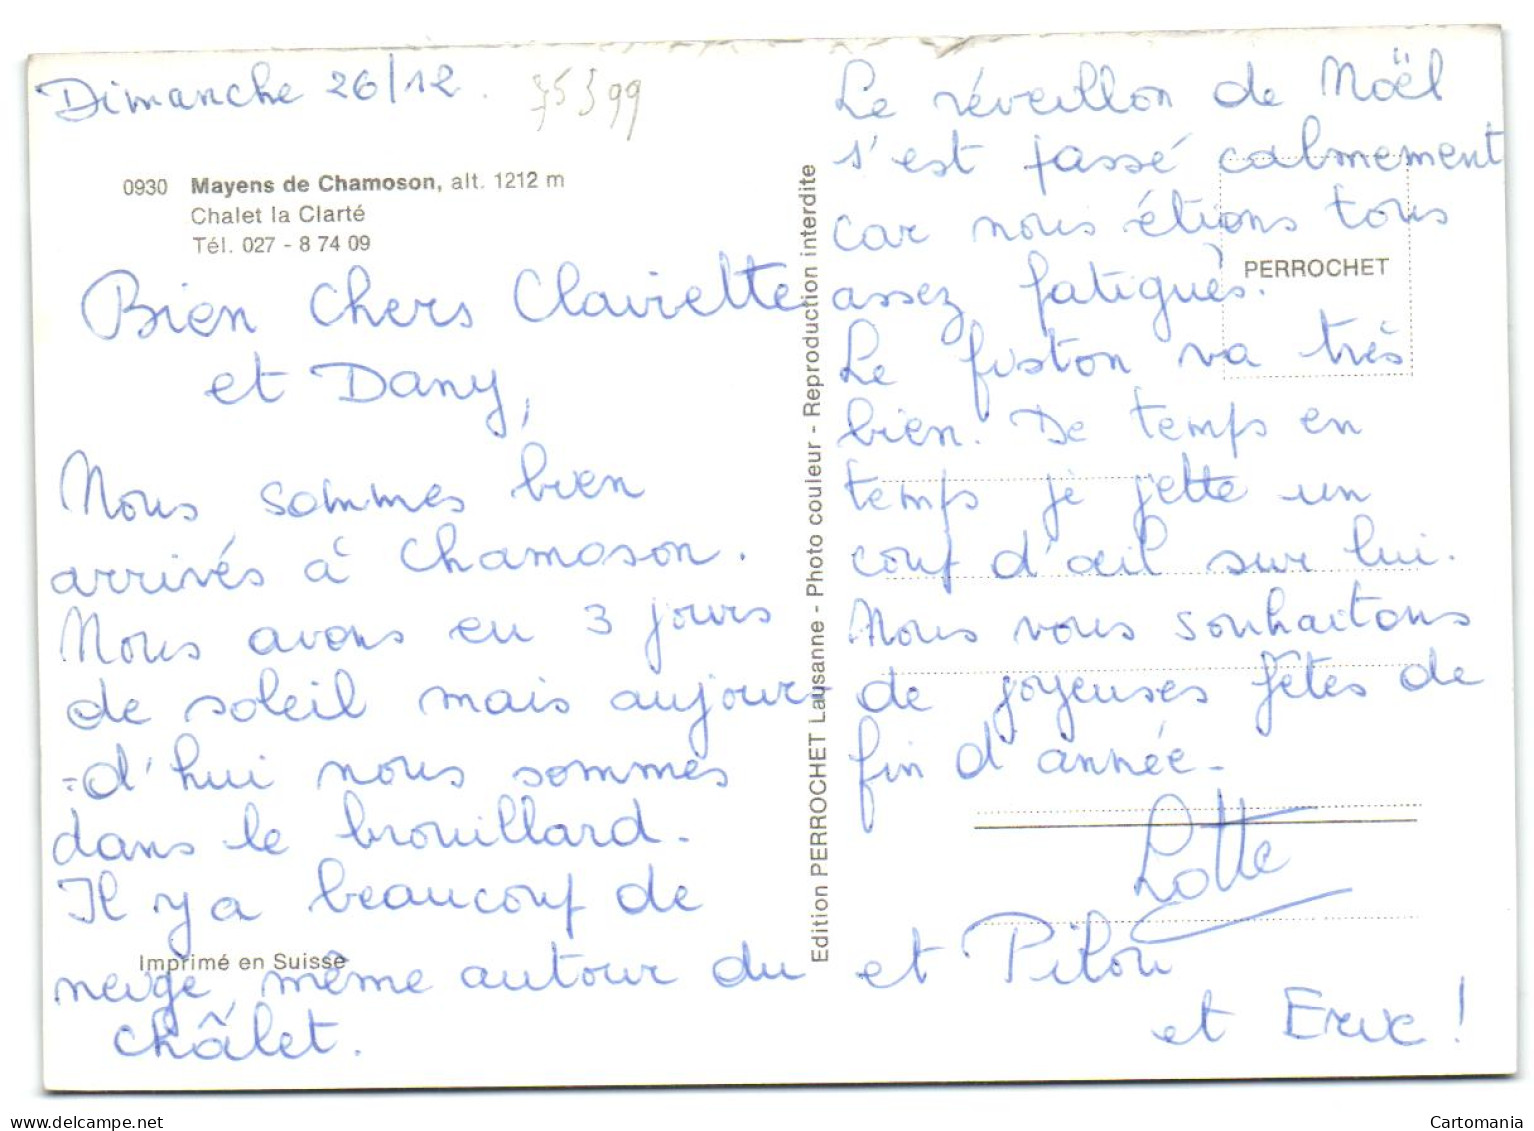 Dimanche 26/12.
75399
0930 Mayens de Chamoson, alt. 1212 m
Chalet la Clarté
Tél. 027 - 8 74 09
Bien Chers Clairette
et Dany,
Nous sommes bien
arrivés à Chamoson.
Nous avons eu 3 jours
de soleil mais aujour-
-d'hui nous sommes
dans le brouillard.
Il y a beaucoup de
neige, même autour du
châlet.
Imprimé en Suisse
Edition PERROCHET Lausanne - Photo couleur - Reproduction interdite
Le réveillon de Noël
s'est passé calmement
car nous étions tous
assez fatigués.
PERROCHET
Le fiston va très
bien. De temps en
temps je jette un
coup d'œil sur lui.
Nous vous souhaitons
de joyeuses fêtes de
fin d'année.
Lotte
et Pilou
et Eric!
delcampe.net
Cartomania